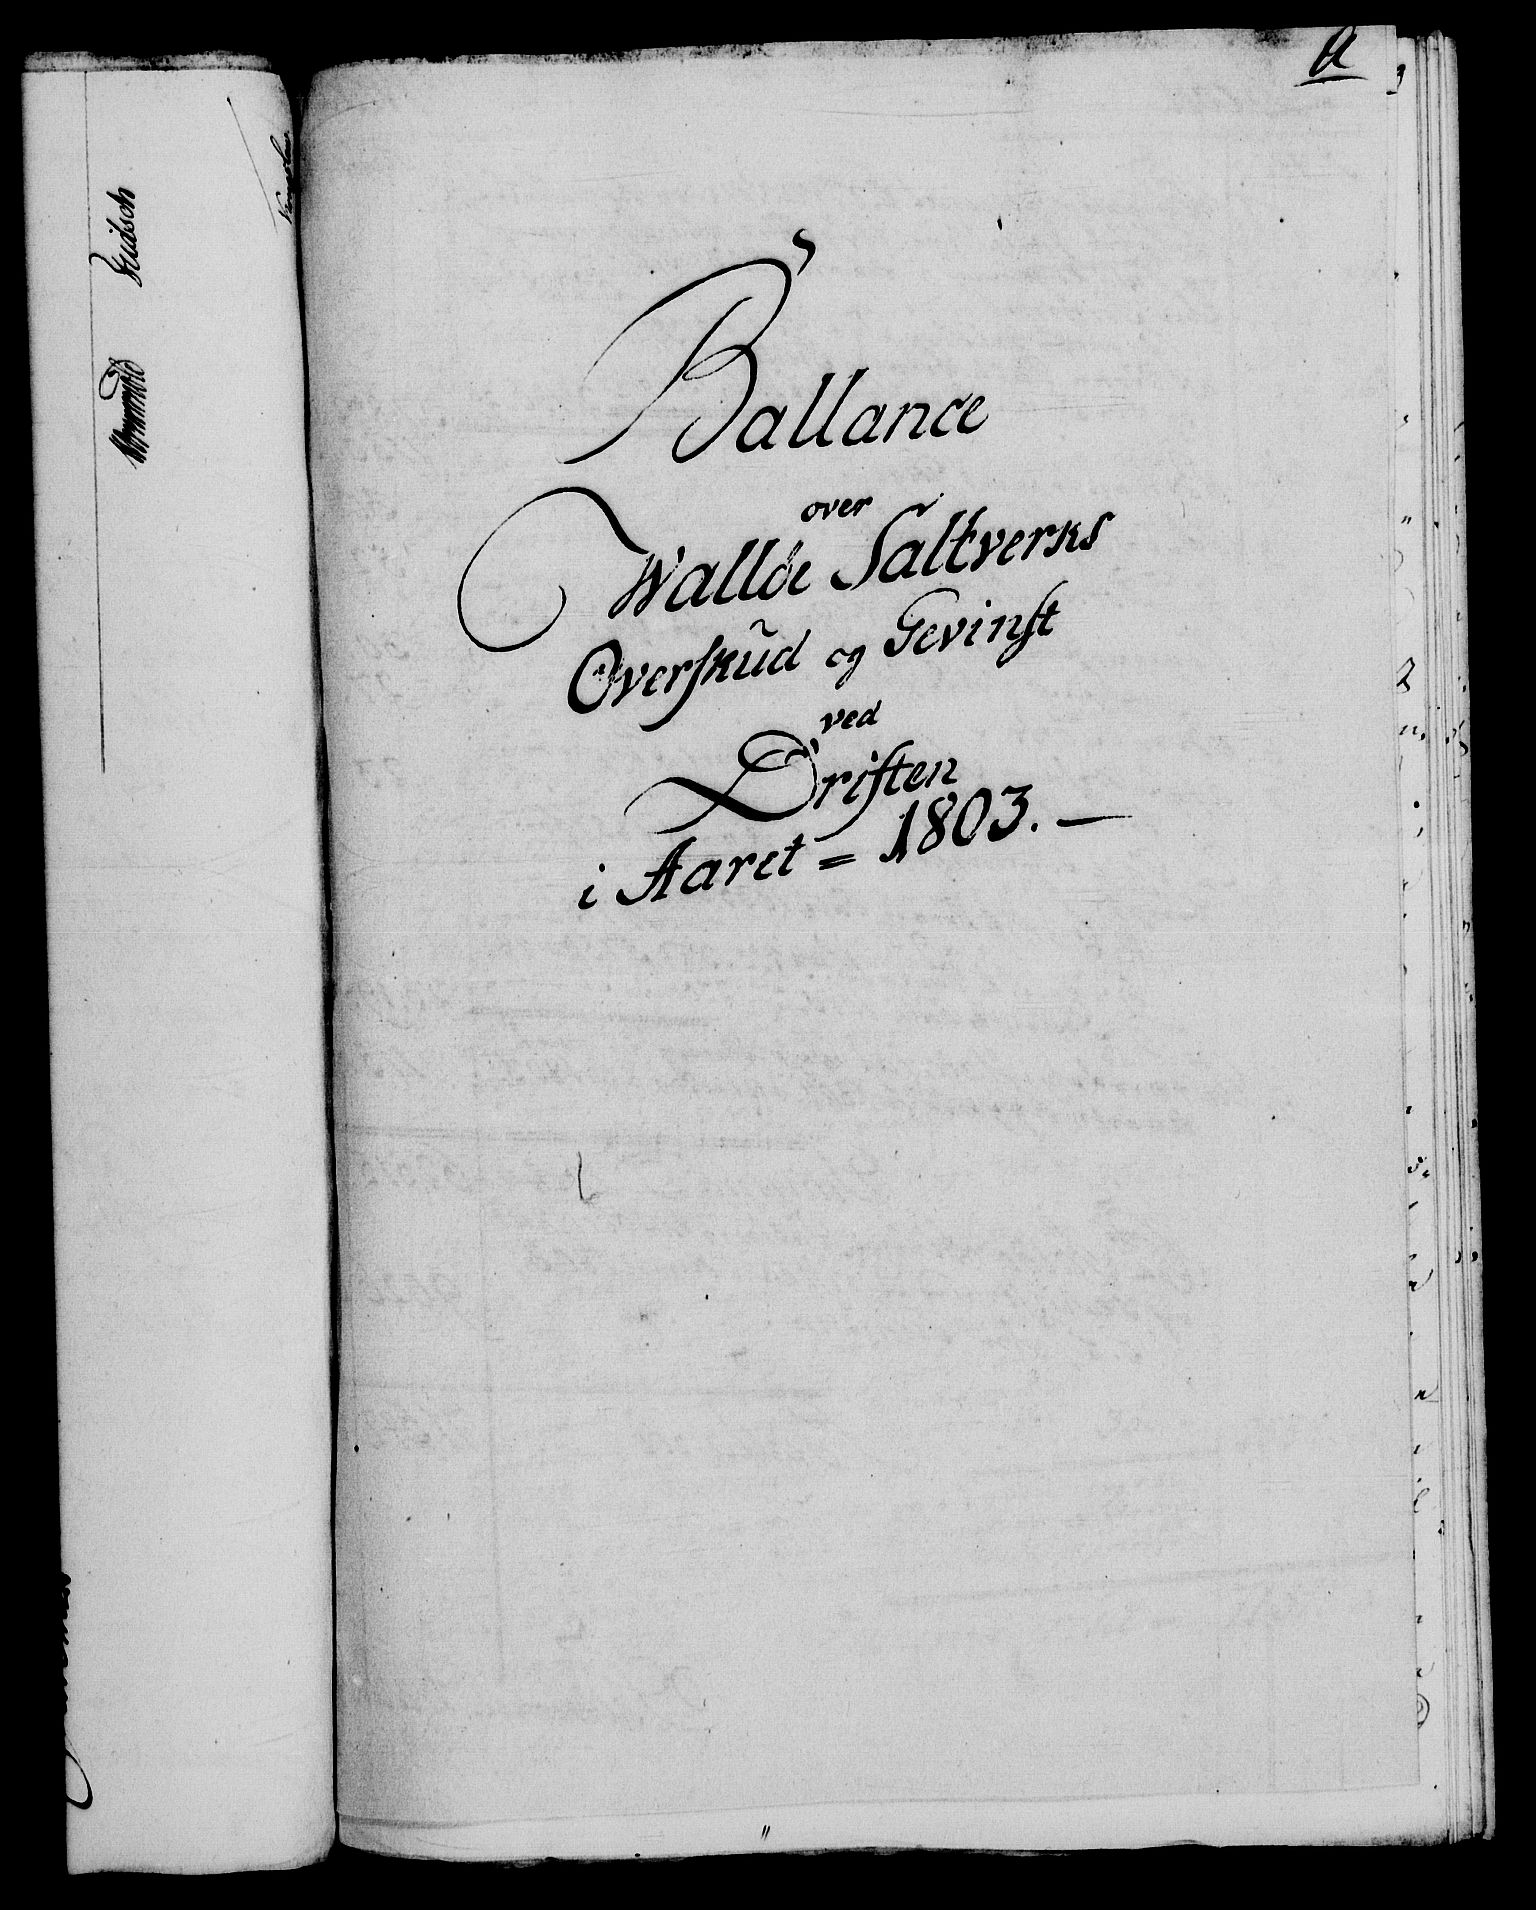 a
Ballance
over
Walløe Saltverks
Overskud og Gevinst
ved
Driften
i Aaret = 1803. —